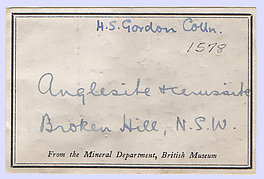 H.S. Gordon Colln.
1578
Anglesite & cerussite
Broken Hill, N.S.W.
From the Mineral Department, British Museum